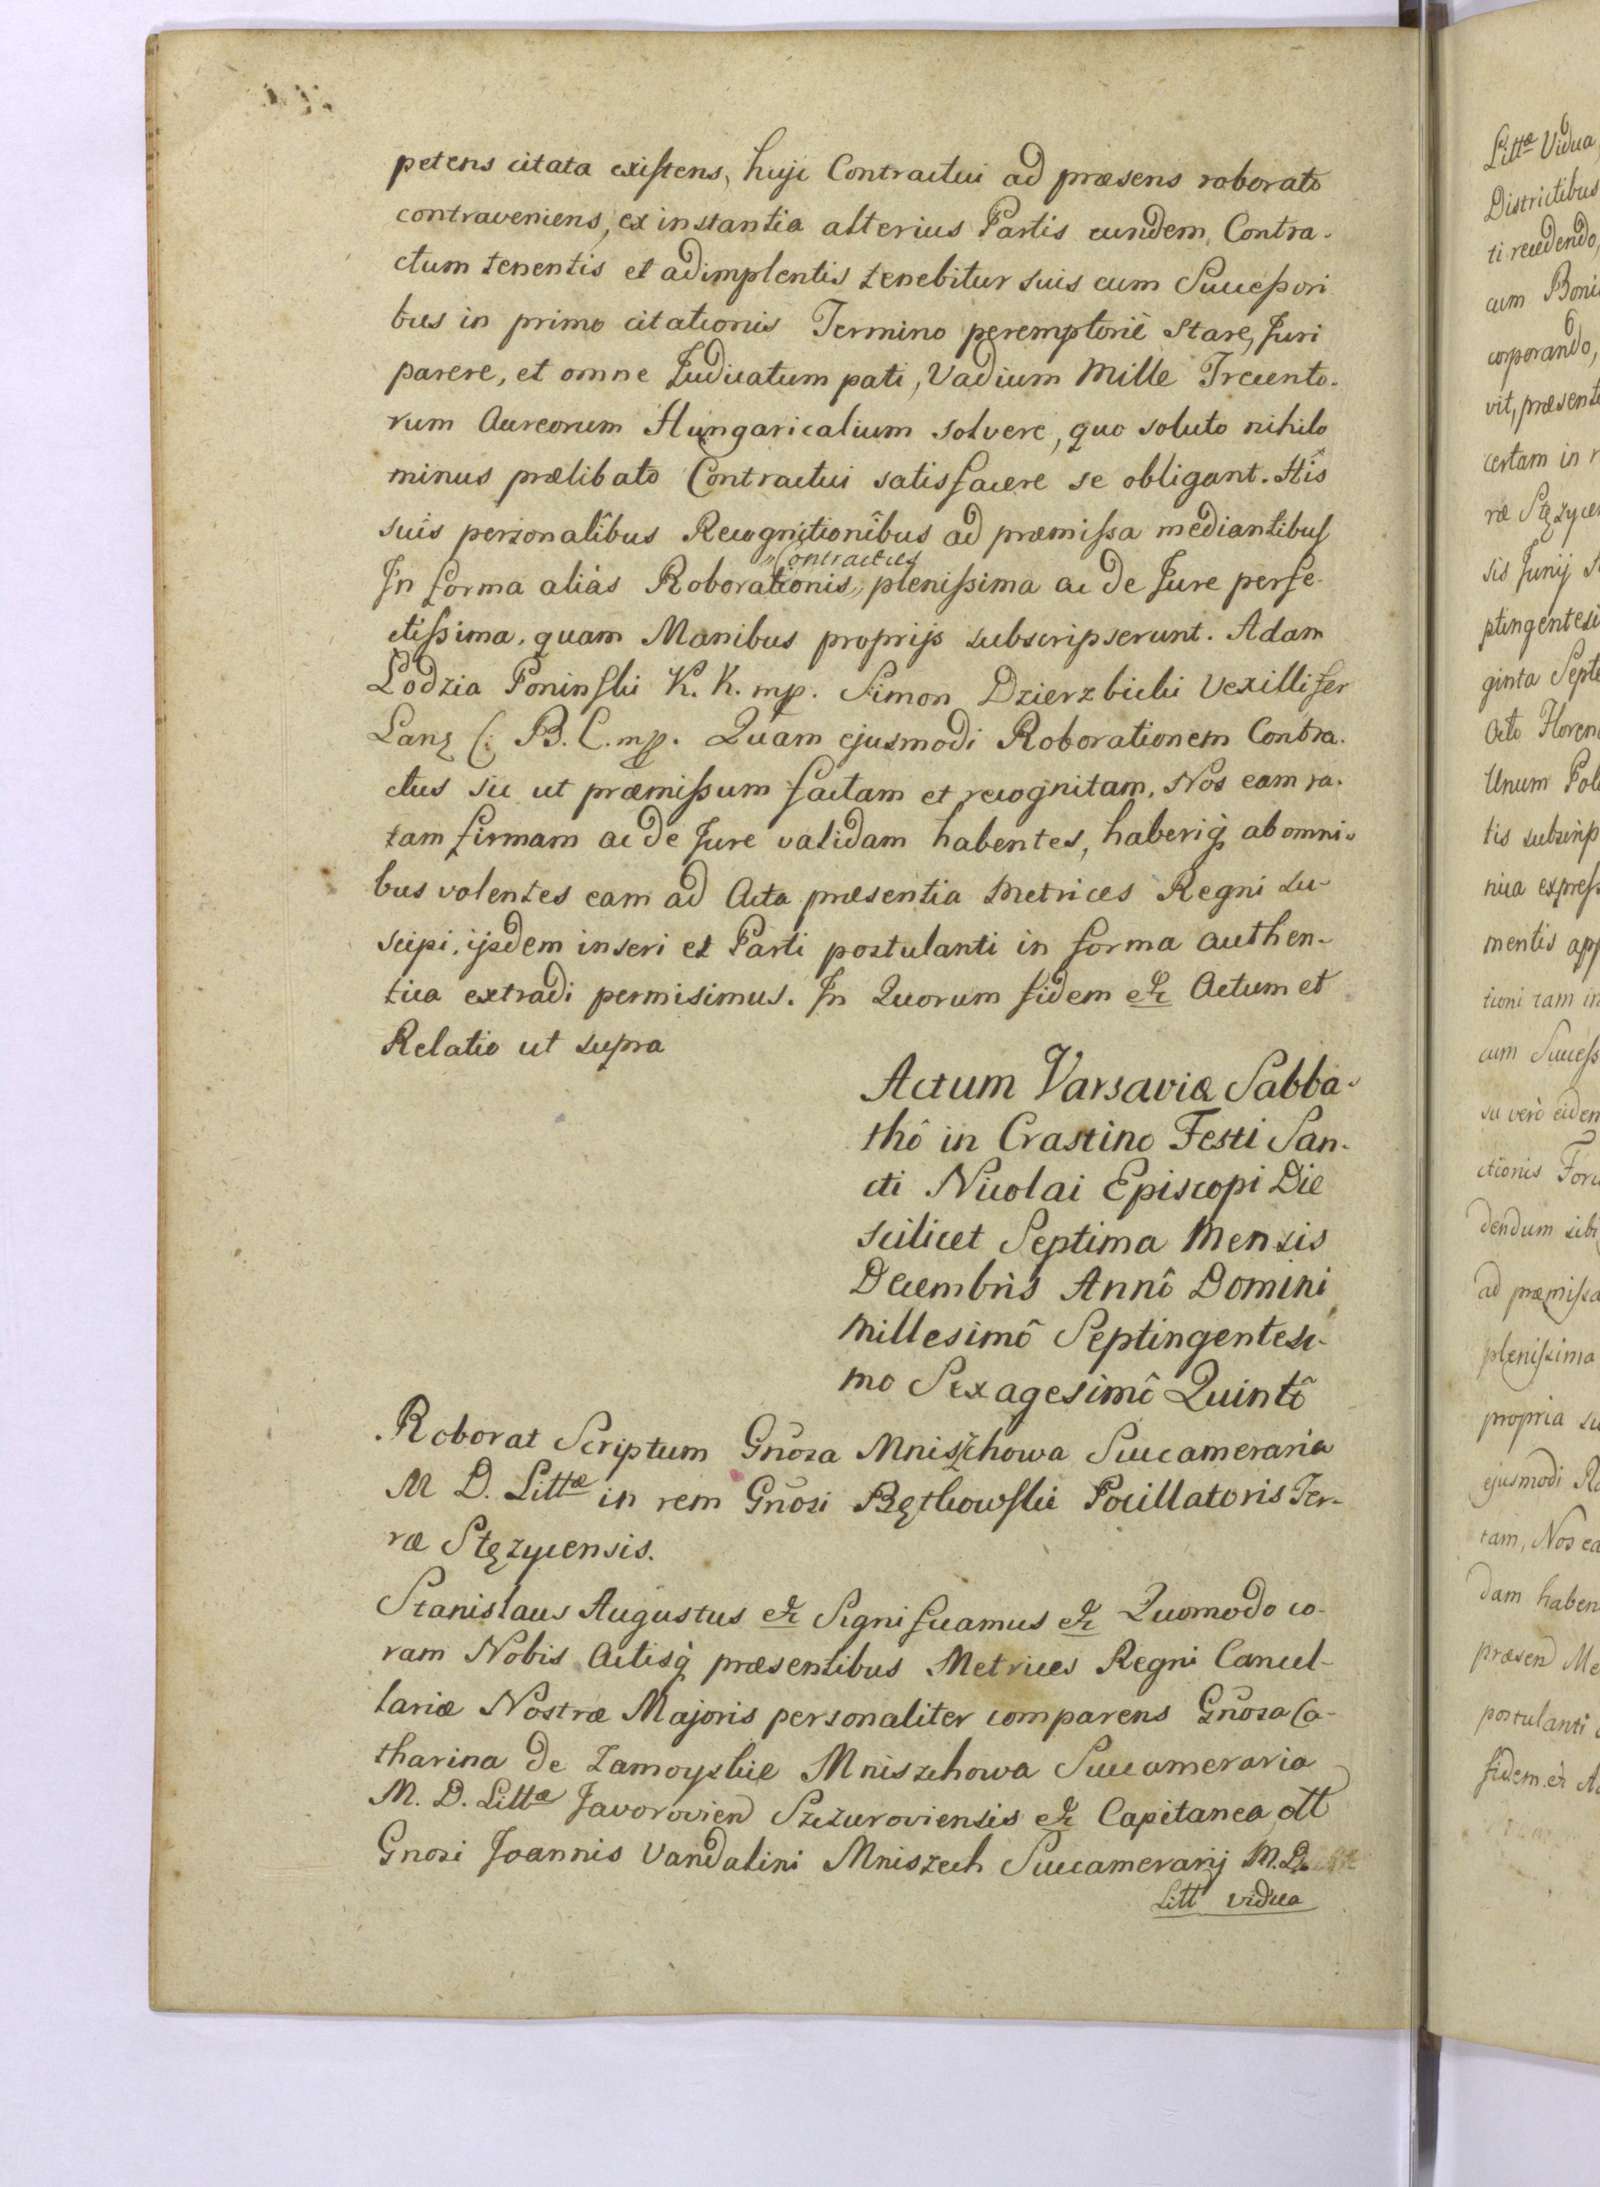 petens citata existens, huji Contractui ad præsens roborato
contraveniens, ex instantia alterius Partis eundem Contra-
ctum tenentis et adimplentis tenebitur suis cum Successori
bus in primo citationis Termino peremptoriè Stare, Juri
parere, et omne Judicatum pati, Vadium Mille Trecento-
rum Aureorum Hungaricalium solvere, quo soluto nihilo
minus prælibato Contractui satisfacere se obligant. Hîs
suis personalîbus Recognitionîbus ad præmissa mediantibus
Contractus
In forma aliás Roborationis,, plenissima ac de Jure perfe-
ctissima, quam Manibus proprijs subscripserunt. Adam
Lodzia Poninski K. K. mp. Simon Dzierzbicki Vexillifer
Lanz (: B. C. mp. Quam ejusmodi Roborationem Contra-
ctus sic ut præmissum factam et recognitam, Nos eam ra-
tam firmam ac de Jure validam habentes, haberiq́ ab omni-
bus volentes eam ad Acta præsentia Metrices Regni su-
scipi, ijsdem inseri et Parti postulanti in forma authen-
tica extradi permisimus. In Quorum fidem etc Actum et
Relatio ut supra
Actum Varsaviæ Sabba-
thô in Crastino Festi San-
cti Nicolai Episcopi Die
scilicet Septima Mensis
Decembris Annô Domini
Millesimô Septingentesi-
mo Sexagesimô Quintô
Roborat Scriptum Gn̄osa Mniszchowa Succameraria
M D. Littæ in rem Gn̄osi Bętkowski Pocillatoris Ter-
ræ Stęzycensis.
Stanislaus Augustus etc Significamus etc Quomodo co-
ram Nobis Actisq́ præsentibus Metrices Regni Cancel-
lariæ Nostræ Majoris personaliter comparens Gn̄osa Ca-
tharina de Zamoyskie Mniszchowa Succameraria
M. D. Littæ Javorovien Szczuroviensis etc Capitanea, olt
Gnosi Joannis Vandalini Mniszech Succamerarij M. D.
Litt vidua
Littæ Vidua,
Districtibus
ti recedendo,
cum Boni
corporando,
vit, præsent
certam in r
ræ Stęzycen
sis Junij
ptingentesi
ginta Septe
Octo Floren
Unum Pol
tis subscrip
nica express
mentis app
tioni tam in
cum Success
su verò eidem
ctionis Foru
dendum sibi
ad præmissa
plenissima
propria su
ejusmodi Ro
tam, Nos ea
dam haben
præsen Me
postulanti
fidem etc Ac